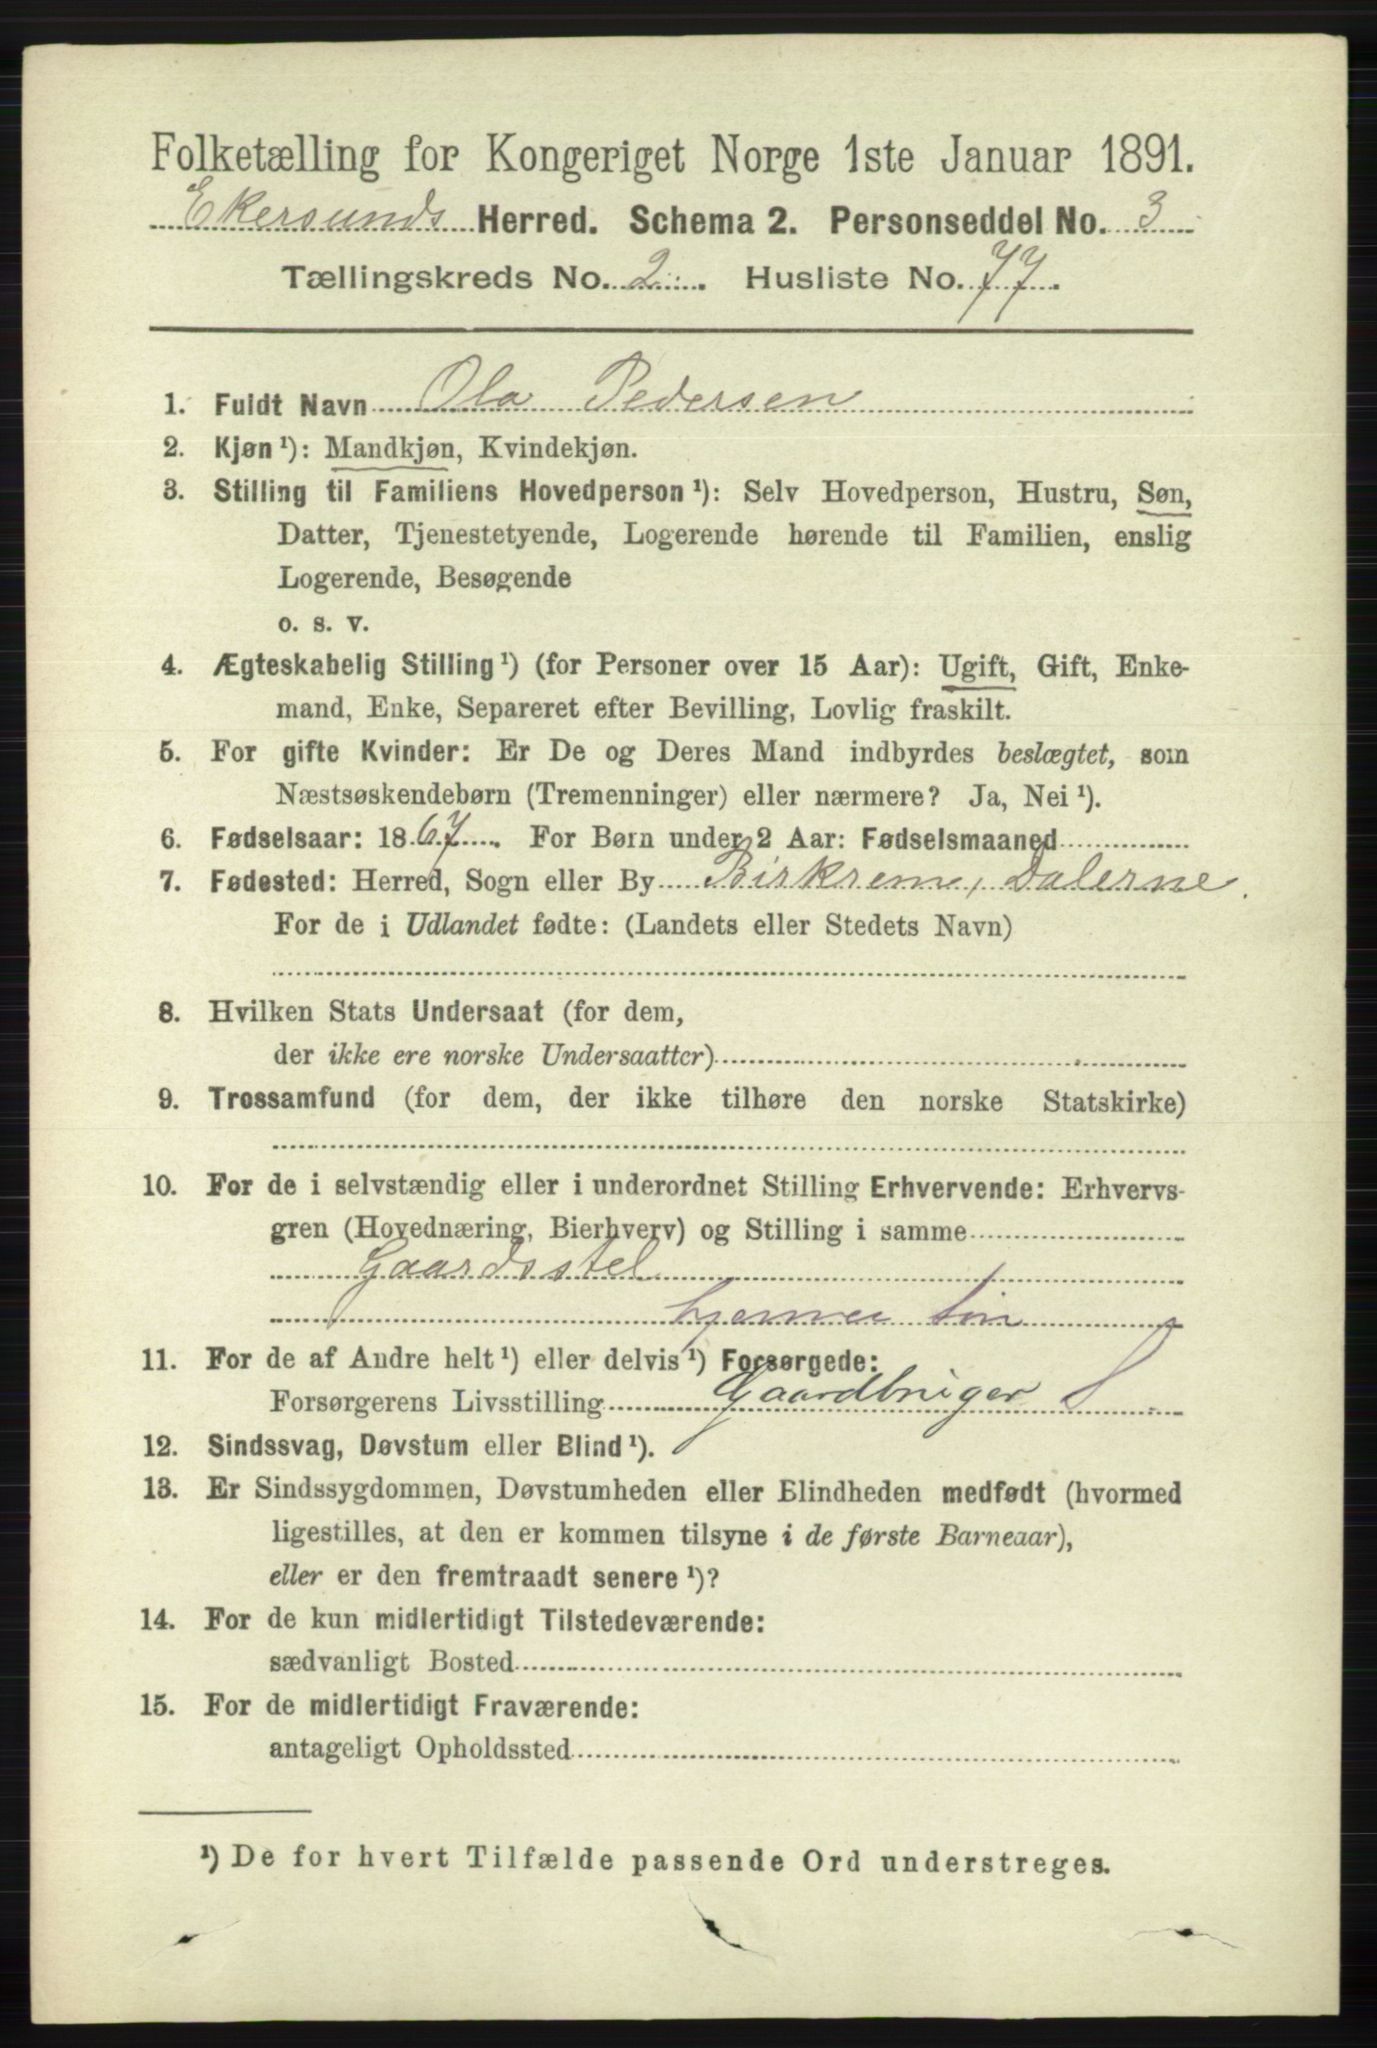 Folketælling for Kongeriget Norge 1ste Januar 1891.
Ekersunds Herred. Schema 2. Personseddel No. 3
Tællingskreds No. 2. Husliste No. 77.
1. Fuldt Navn Ola Pedersen
2. Kjøn ¹): Mandkjøn, Kvindekjøn.
3. Stilling til Familiens Hovedperson ¹): Selv Hovedperson, Hustru, Søn,
Datter, Tjenestetyende, Logerende hørende til Familien, enslig
Logerende, Besøgende
o. s. v.
4. Ægteskabelig Stilling ¹) (for Personer over 15 Aar): Ugift, Gift, Enke-
mand, Enke, Separeret efter Bevilling, Lovlig fraskilt.
5. For gifte Kvinder: Er De og Deres Mand indbyrdes beslægtet, som
Næstsøskendebørn (Tremenninger) eller nærmere? Ja, Nei ¹).
6. Fødselsaar: 1867. For Børn under 2 Aar: Fødselsmaaned
7. Fødested: Herred, Sogn eller By Birkrem, Dalerne.
For de i Udlandet fødte: (Landets eller Stedets Navn)
8. Hvilken Stats Undersaat (for dem,
der ikke ere norske Undersaatter)
9. Trossamfund (for dem, der ikke tilhøre den norske Statskirke)
10. For de i selvstændig eller i underordnet Stilling Erhvervende: Erhvervs-
gren (Hovednæring, Bierhverv) og Stilling i samme
Gaardsstel
11. For de af Andre helt ¹) eller delvis ¹) Forsørgede:
Forsørgerens Livsstilling Gaardbruger S
12. Sindssvag, Døvstum eller Blind ¹).
13. Er Sindssygdommen, Døvstumheden eller Blindheden medfødt (hvormed
ligestilles, at den er kommen tilsyne i de første Barneaar),
eller er den fremtraadt senere ¹)?
14. For de kun midlertidigt Tilstedeværende:
sædvanligt Bosted
15. For de midlertidigt Fraværende:
antageligt Opholdssted
¹) De for hvert Tilfælde passende Ord understreges.